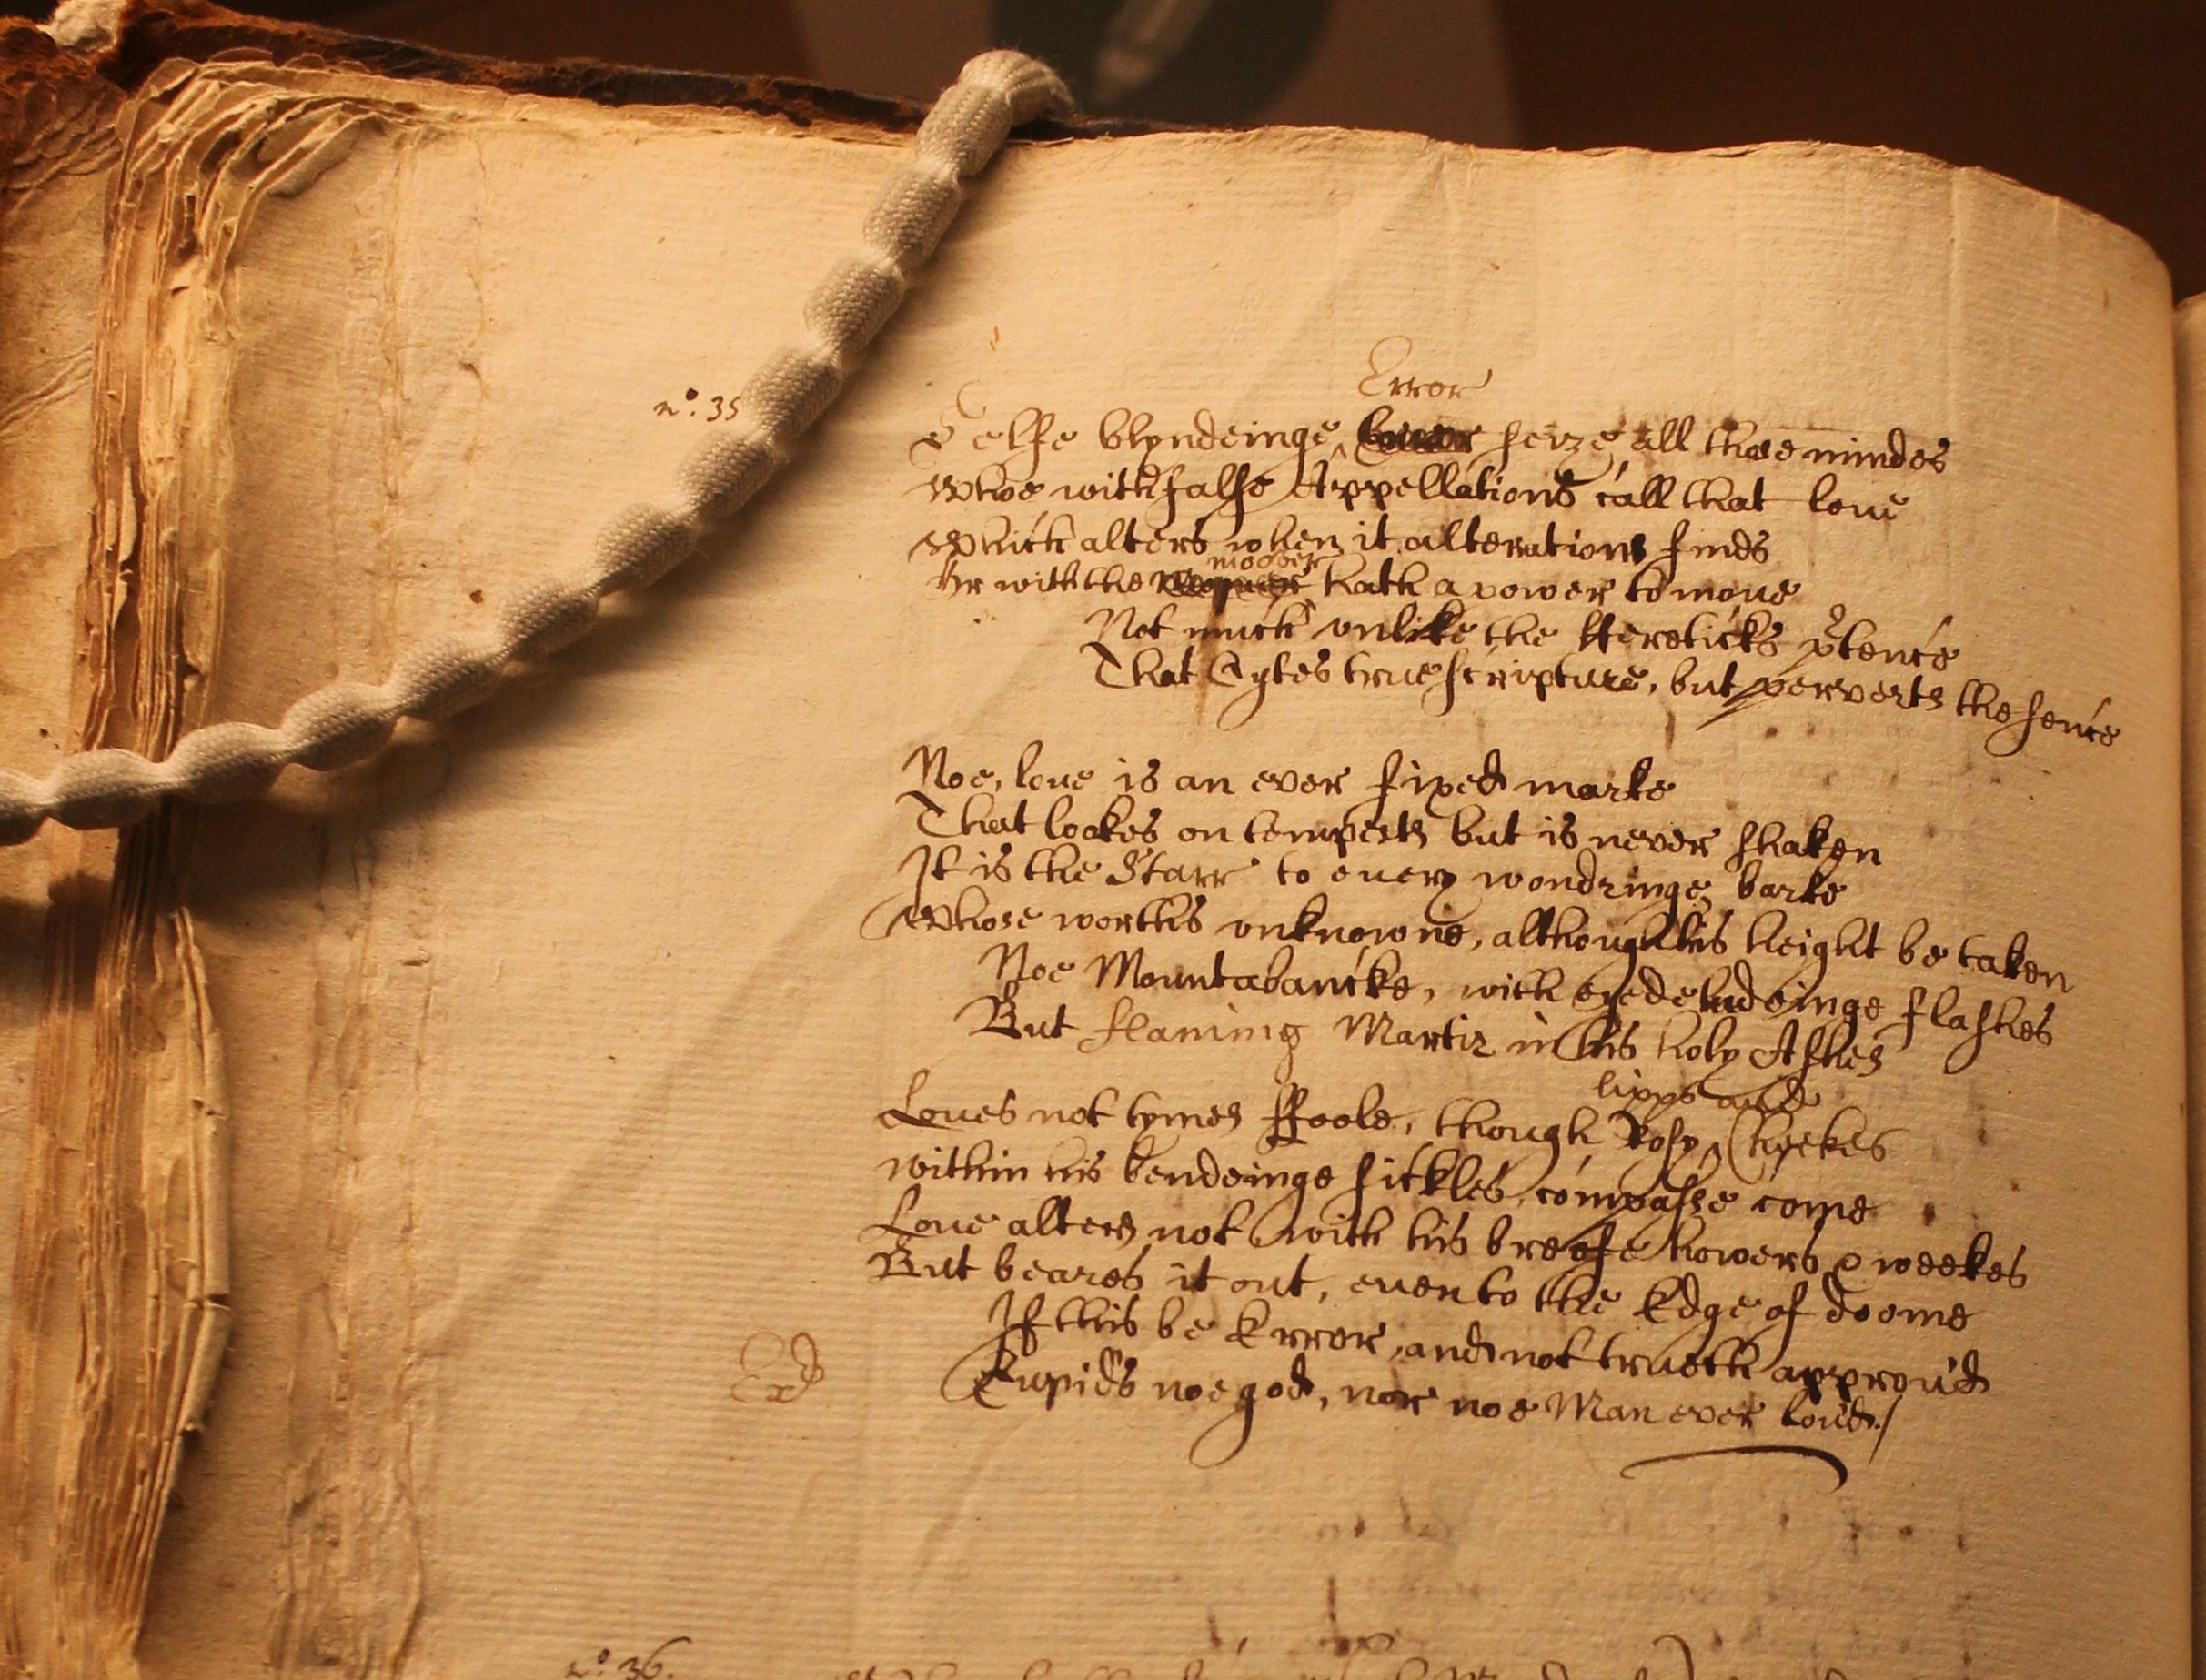 Error
nº. 35
Selfe blyndeinge seize all those mindes
Whoe with false Appellations call that loue
Which alters when it alterations finds
moover
Or with the hath a power to moue
Not much vnlike the Hereticks ptence
That Cytes true scripture, but perverts the sence
Noe, loue is an ever fixed marke
That lookes on tempests but is never shaken
It is the Starr to euery wondringe barke
Whose worths vnknowne, although his height be taken
Noe Mountabancke, with eyedeludeinge flashes
But flaming Martir in his holy Ashes
lipps and
Loues not tymes ffoole, though Rosy Cheekes
within his bendeinge sickles compasse come
Loue alters not with his breefe howers & weekes
But beares it out, euen to the Edge of doome
If this be Error, and not trueth approu'd
Ex
Cupids noe god, nor noe Man ever lou'd./
nº. 36.